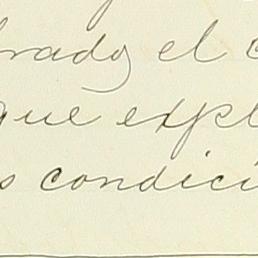 brado, el c
que expl
s condici